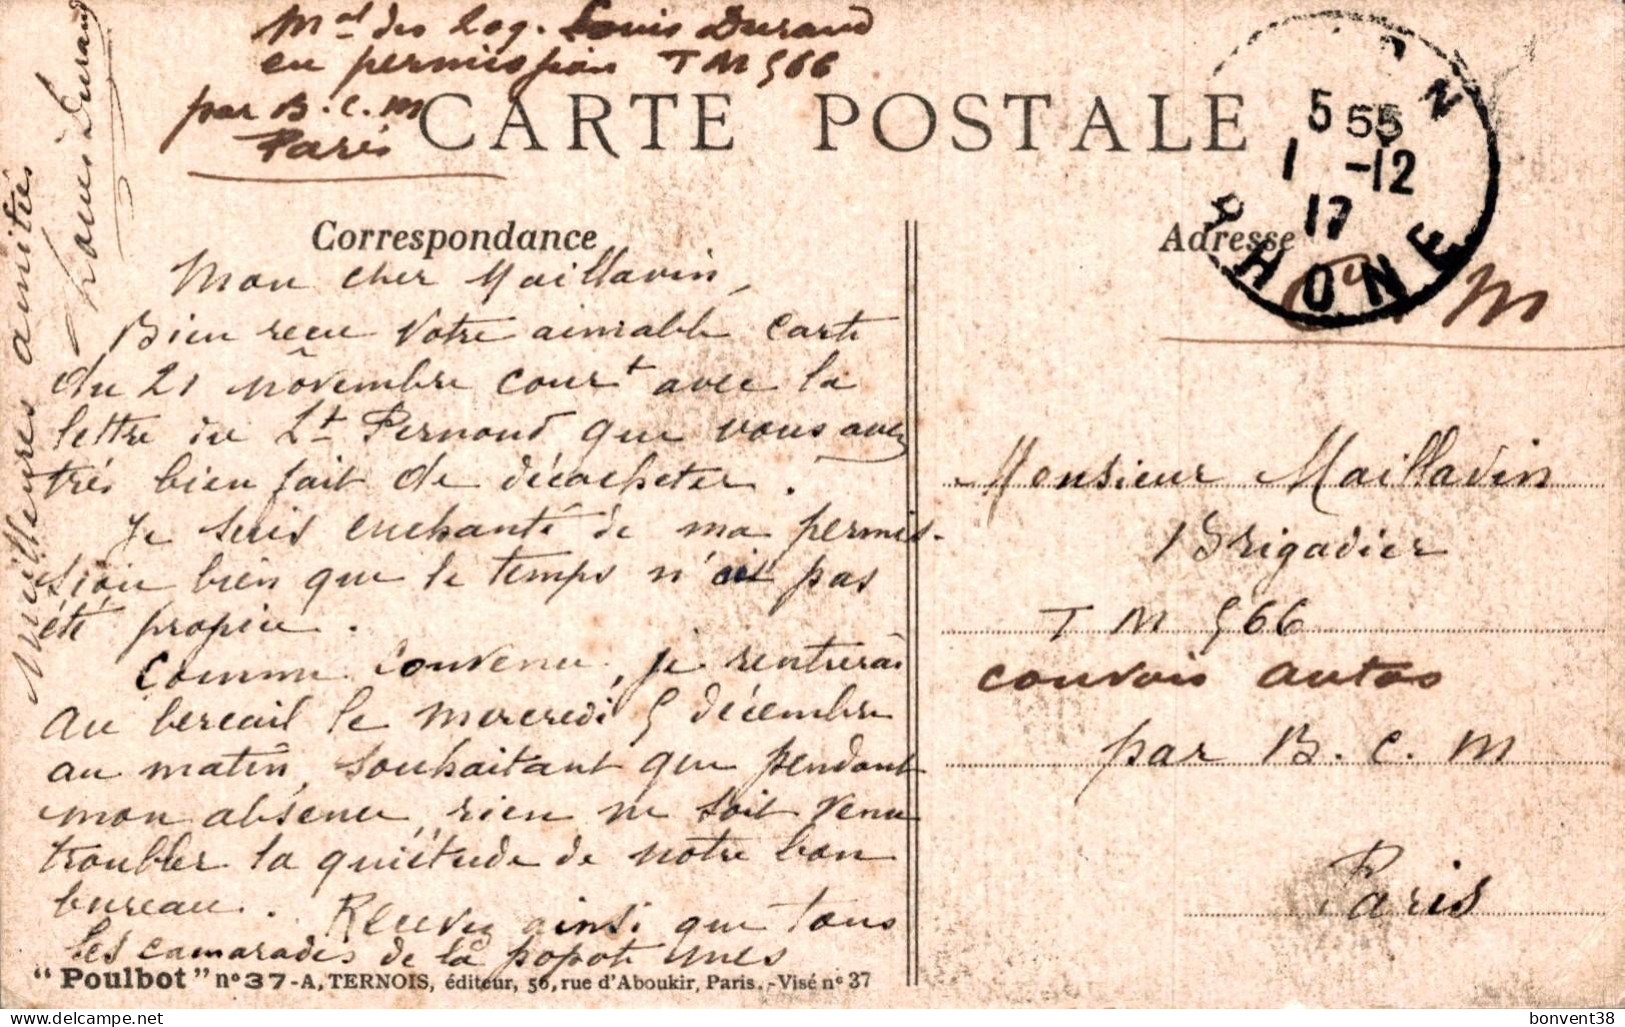 Mal des Log. Louis Durand
en permission TM 566
par B.C.M
Paris
CARTE POSTALE
5 55
1 -12
17
RHONE
Correspondance
Adresse
F M
Mon cher Maillavin,
Bien reçu votre aimable carte
du 21 novembre court avec la
lettre du Lt Pernoud que vous avez
très bien fait de décacheter.
Je suis enchanté de ma permis-
sion bien que le temps n'ait pas
été propice.
Comme convenu, je rentrerai
au bercail le mercredi 5 décembre
au matin, souhaitant que pendant
mon absence, rien ne soit venu
troubler la quiétude de notre bon
bureau. Recevez ainsi que tous
les camarades de la popote mes
Meilleures amitiés
Louis Durand
Monsieur Maillavin
Brigadier
T M 566
convois autos
par B.C.M
Paris
"Poulbot" no 37-A. TERNOIS, éditeur, 56, rue d'Aboukir, Paris.-Visé no 37
bonvent38